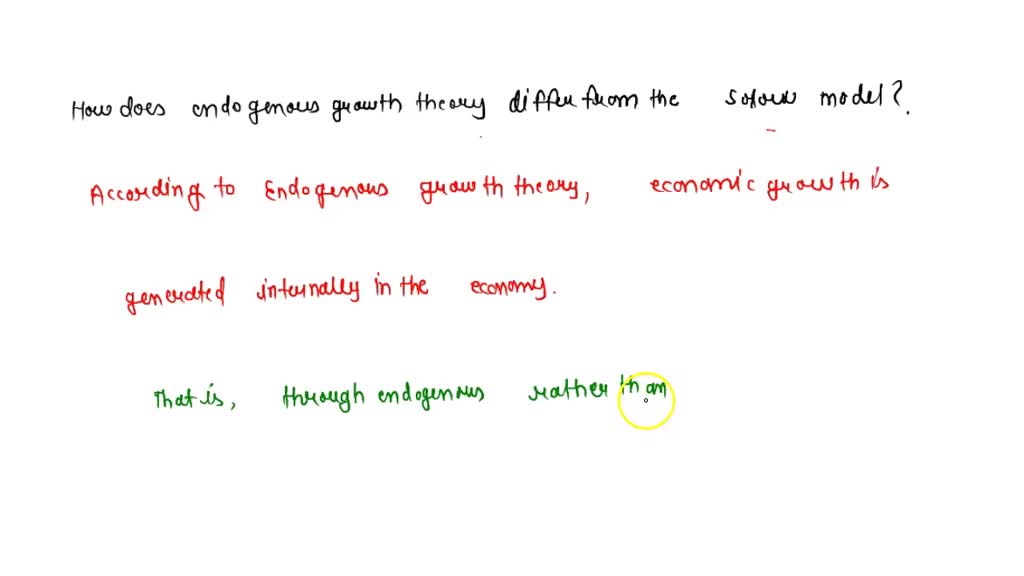 How does endogenous growth theory differ from the Solow model?
According to Endogenous growth theory, economic growth is
generated internally in the economy.
That is, through endogenous rather than